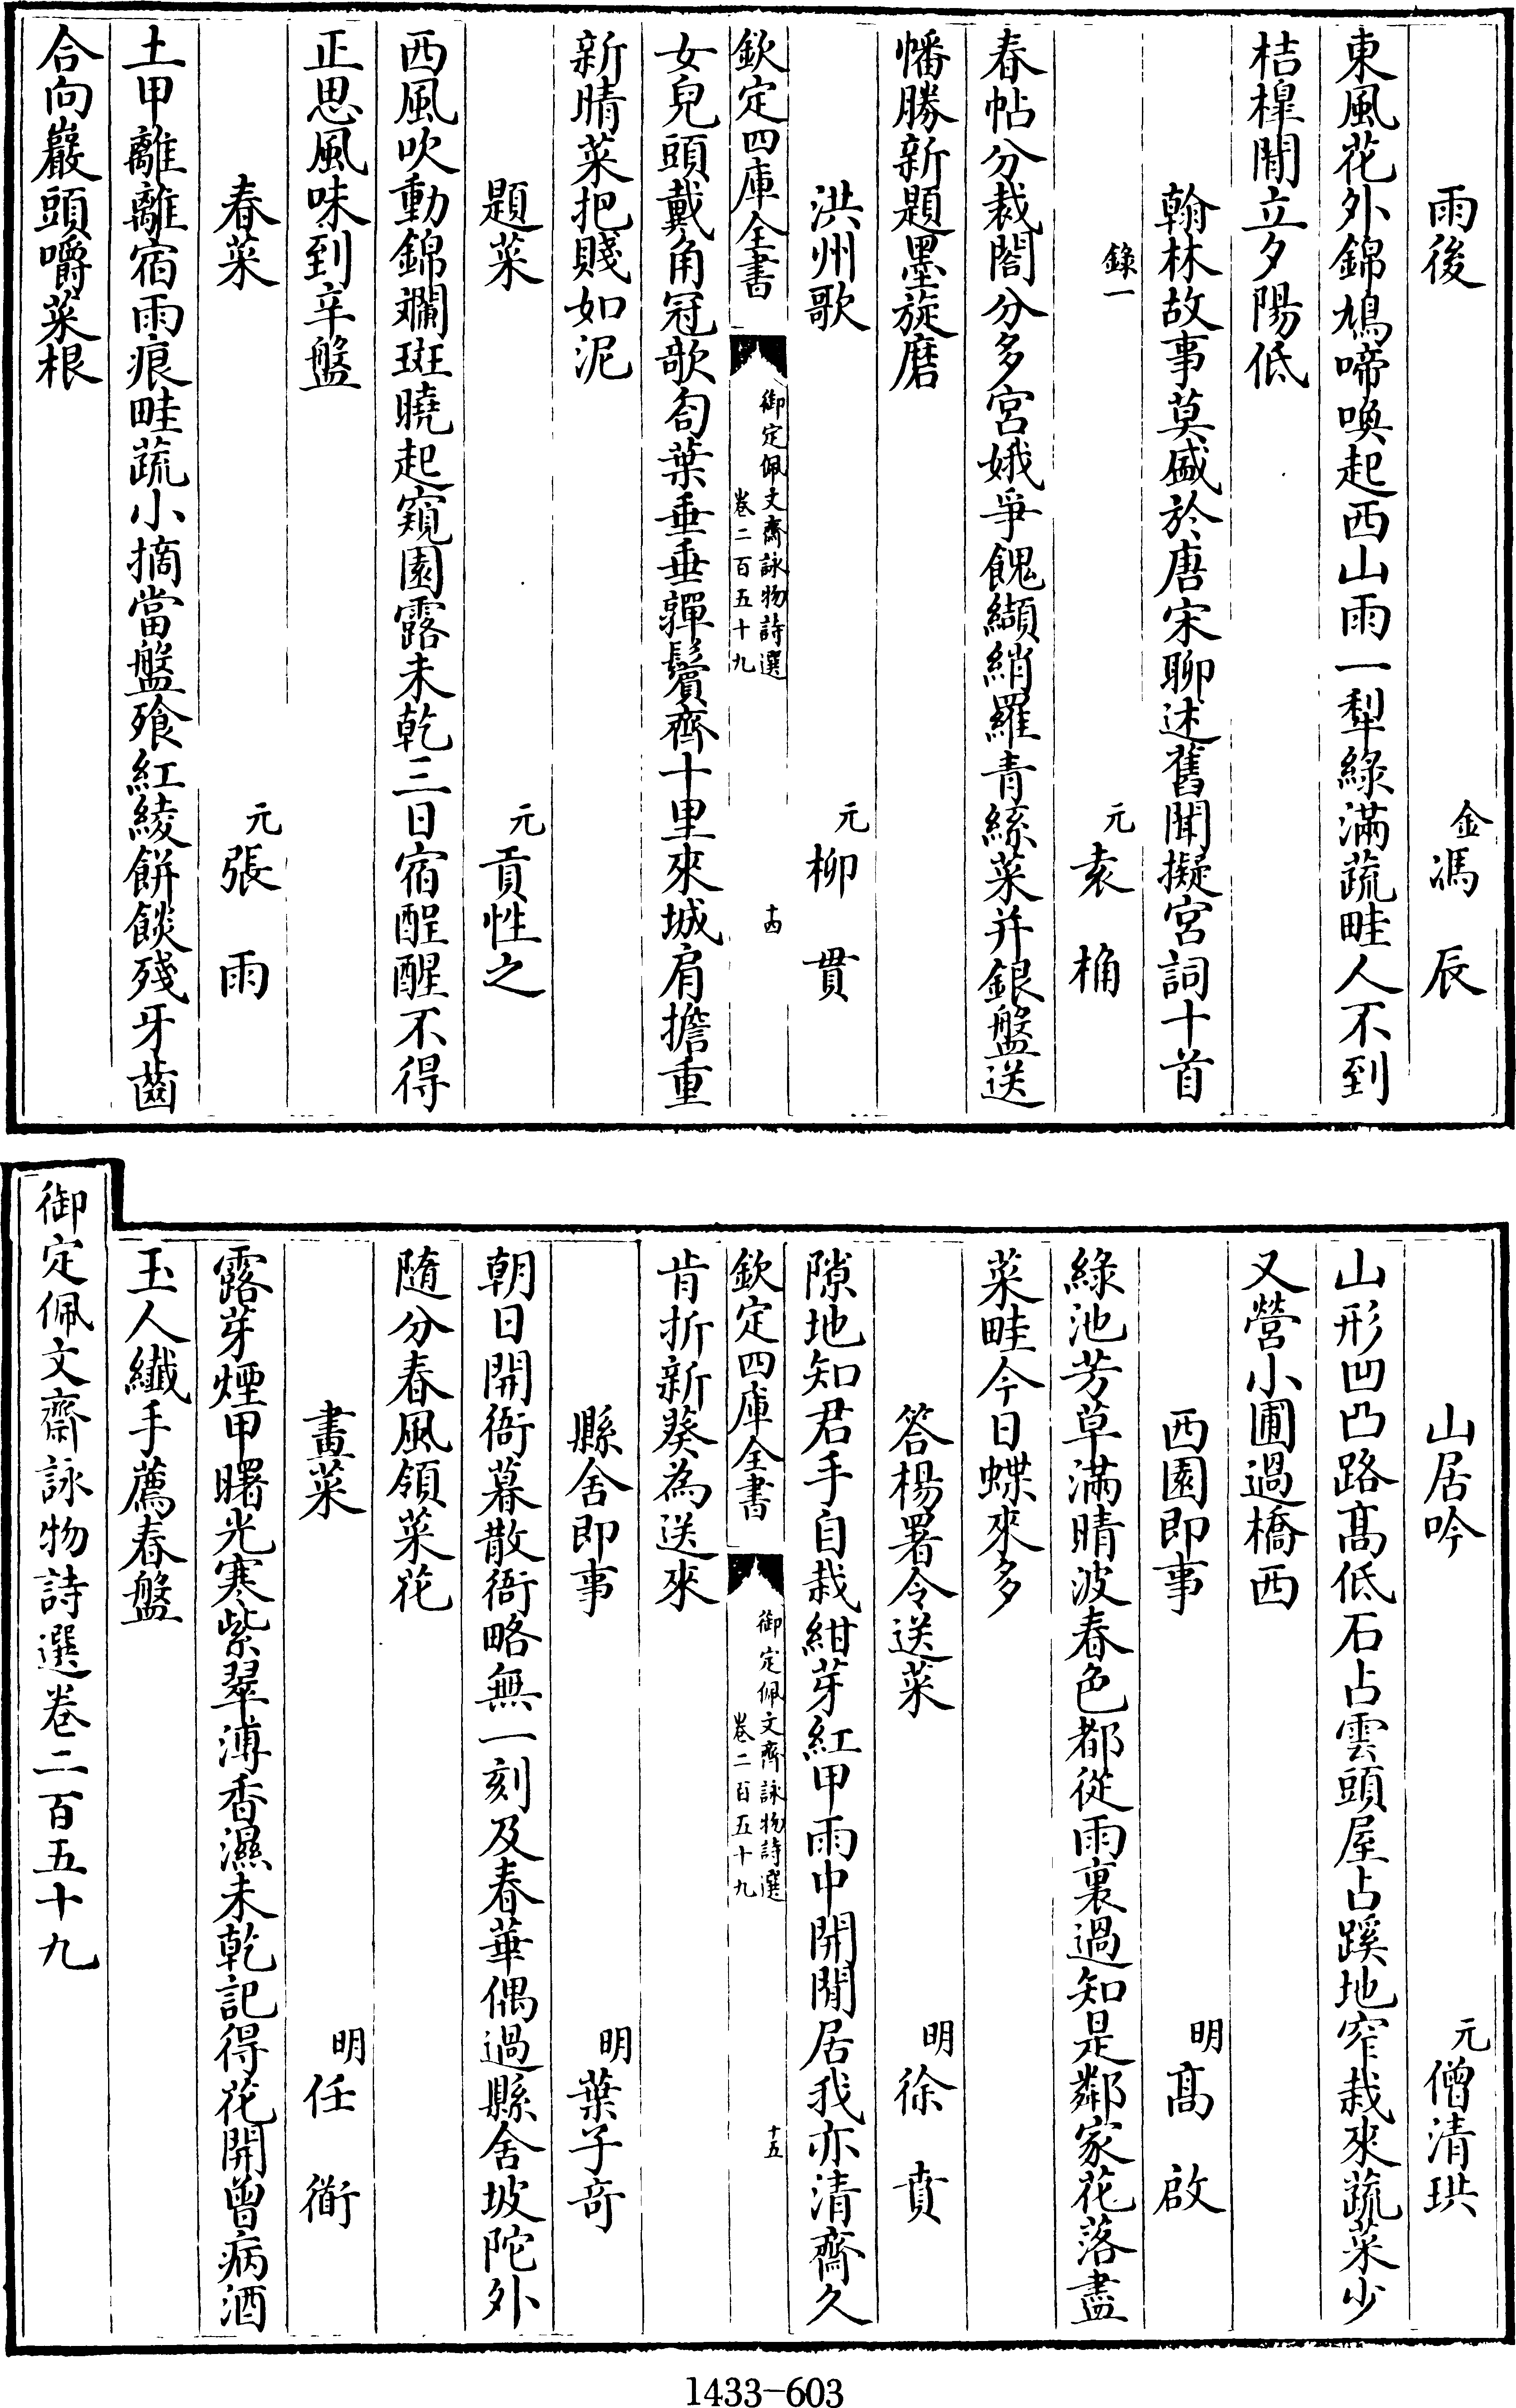 雨後
金馮辰
東風花外錦鳩啼喚起西山雨一犁綠滿蔬畦人不到
桔槹閒立夕陽低
翰林故事莫盛於唐宋聊述舊聞擬宮詞十首
錄一
元袁桷
春帖分裁閤分多宮娥爭餽纈綃羅青絲菜并銀盤送
幡勝新題墨旋磨
洪州歌
元柳貫
欽定四庫全書
御定佩文齋詠物詩選
卷二百五十九
十四
女兒頭戴角冠欹匌葉垂垂嚲鬢齊十里來城肩擔重
新晴菜把賤如泥
題菜
元貢性之
西風吹動錦斕斑曉起窺園露未乾三日宿酲醒不得
正思風味到辛盤
春菜
元張雨
土甲離離宿雨痕畦蔬小摘當盤飱紅綾餅餤殘牙齒
合向巖頭嚼菜根
山居吟
元僧清珙
山形凹凸路髙低石占雲頭屋占蹊地窄栽來蔬菜少
又營小圃過橋西
西園即事
明髙啟
綠池芳草滿晴波春色都從雨裏過知是鄰家花落盡
菜畦今日蝶來多
答楊署令送菜
明徐賁
隙地知君手自栽紺芽紅甲雨中開閒居我亦清齋久
欽定四庫全書
御定佩文齋詠物詩選
卷二百五十九
十五
肯折新葵為送來
縣舍即事
明葉子奇
朝日開衙暮散衙略無一刻及春華偶過縣舍坡陀外
隨分春風領菜花
畫菜
明任衜
露芽煙甲曙光寒紫翠溥香濕未乾記得花開曾病酒
玉人纎手薦春盤
御定佩文齋詠物詩選卷二百五十九
1433-603